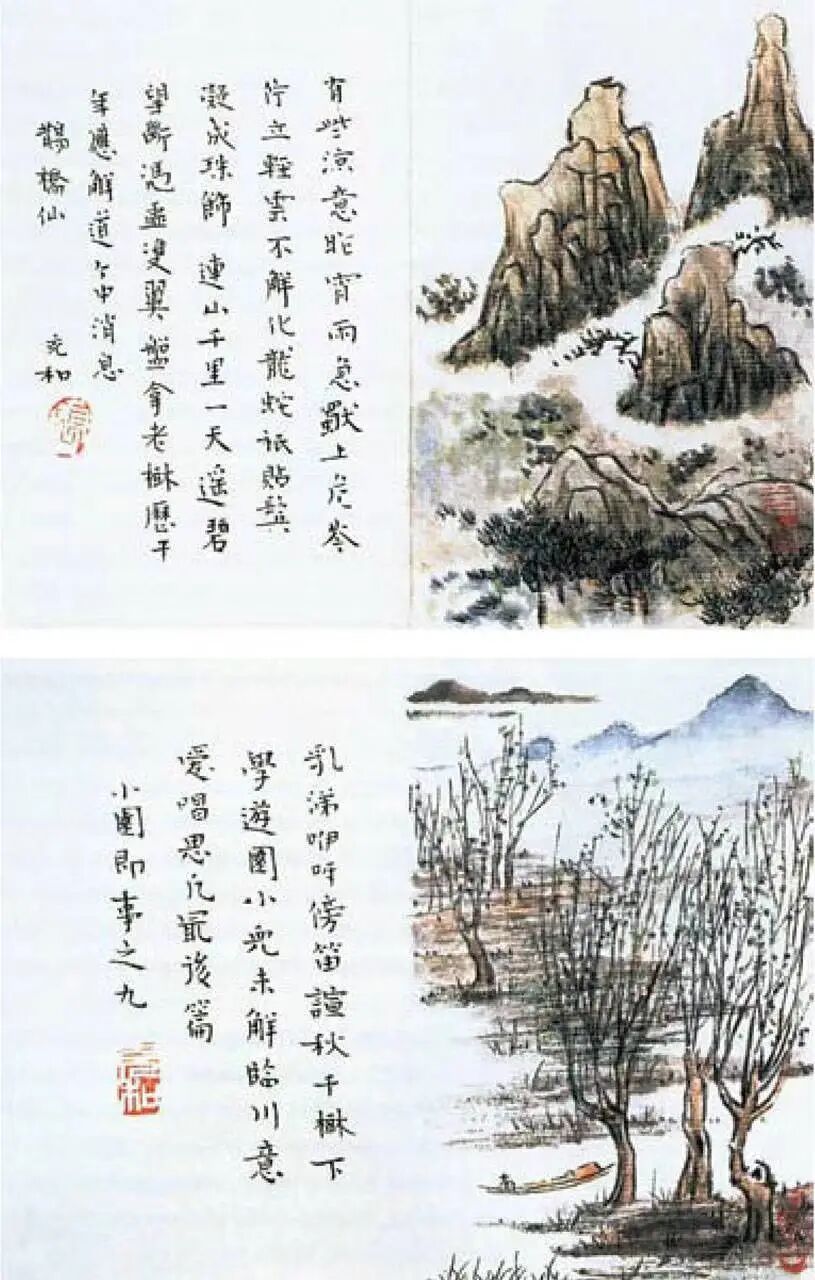 有些涼意昨宵雨急獨上危岑
佇立輕雲不解化龍蛇祇貼鬢
凝成珠飾 連山千里一天遥碧
望斷憑虛雙翼盤拿老樹歷千
年應解道个中消息
鵲橋仙 充和
張
乳涕咿呀傍笛諠秋千樹下
學遊園小兒未解臨川意
愛唱思凡最後篇
小園即事之九